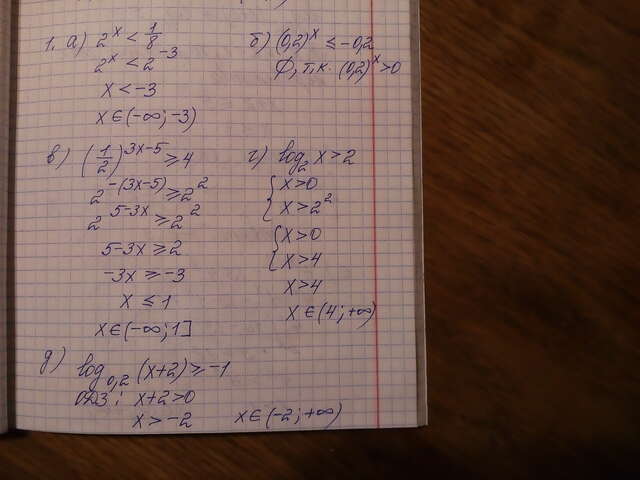 1. а) 2^x < 1/8
2^x < 2^-3
x < -3
x ∈ (-∞; -3)
б) (0,2)^x ≤ -0,2
∅, т.к. (0,2)^x > 0
в) (1/2)^3x-5 ≥ 4
2^-(3x-5) ≥ 2^2
2^5-3x ≥ 2^2
5-3x ≥ 2
-3x ≥ -3
x ≤ 1
x ∈ (-∞; 1]
г) log_2 x > 2
{ x > 0
x > 2^2
{ x > 0
x > 4
x > 4
x ∈ (4; +∞)
д) log_0,2 (x+2) ≥ -1
ОДЗ: x+2 > 0
x > -2 x ∈ (-2; +∞)